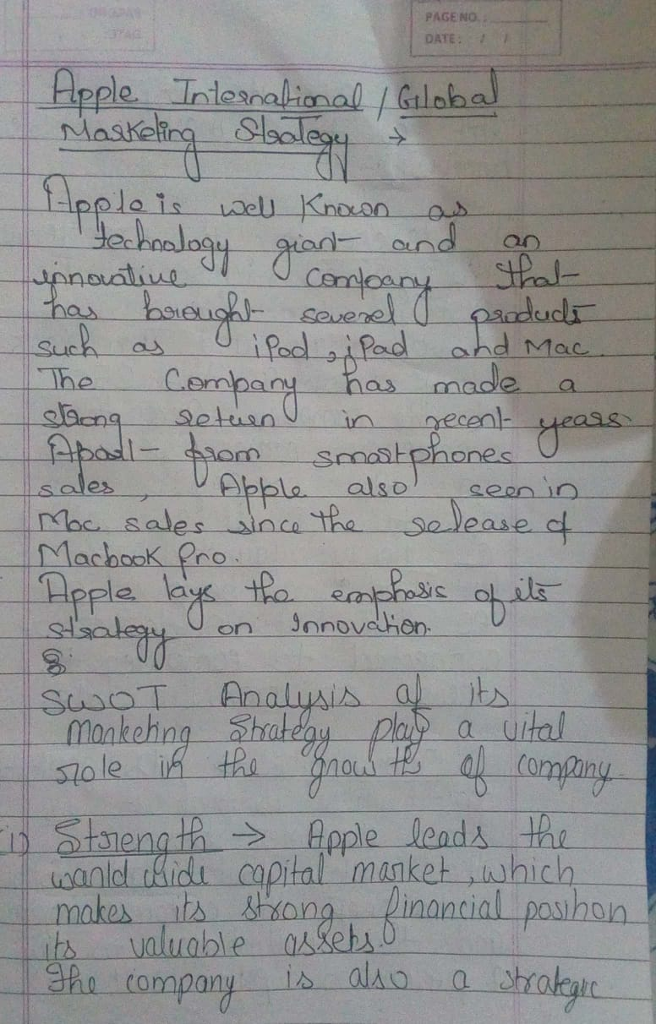 PAGE NO.
DATE: / /
Apple International / Global
Marketing Strategy →
Apple is well Known as
technology giant and an
innovative company that
has brought severel products
such as iPod, iPad and Mac.
The Company has made a
strong return in recent years.
Apart from smartphones
sales, Apple also seen in
Mac sales since the release of
Macbook Pro.
Apple lays the emphasis of its
strategy on Innovation.
&
SWOT Analysis of its
Marketing Strategy play a vital
role in the growth of company
1) Strength → Apple leads the
world wide capital market, which
makes its strong financial position
its valuable assets.
The company is also a strategic